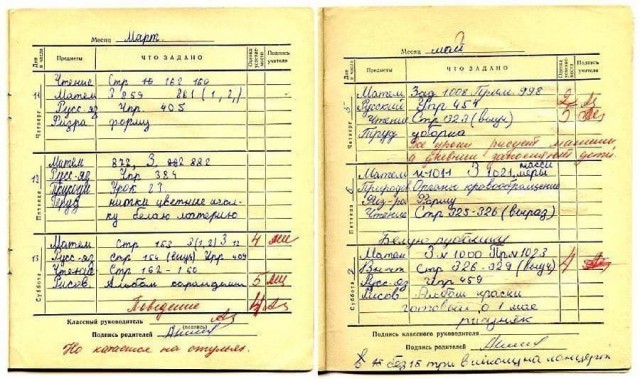 Месяц Март
Дни и числа Предметы ЧТО ЗАДАНО Оценка успеваемости Подпись учителя
Четверг 11
Чтение Стр 162 160
Матем З 259 261 (1, 2,)
Русс-яз Упр. 405
Физра форма
Пятница 12
Матем 882
Русс-яз Упр 384
Природа Урок 27
Труд нитки цветные иголку белую материю
Суббота 13
Матем Стр 153 3(1,2) 3 4
Русс-яз стр 154 (выуч) Упр 409
Чтение Стр 162-160
Рисов. Альбом карандаши 5
Поведение 4
Классный руководитель
(подпись)
Подпись родителей
Но катается на стульях.
Месяц май
Дни и числа Предметы ЧТО ЗАДАНО Оценка успеваемости Подпись учителя
Четверг 5
Матем Зад 1008 Прим 998 2
Русский Упр 454 5
Чтение Стр 323 (выуч)
Труд уборка
Все уроки рисует машины
в дневнике
Пятница 6
Матем N-1011 З 1021 меры массы
Природов Органы кровообращения
Физ-ра Форму
Чтение Стр 325-326 (выраз)
Белую рубашку
Суббота
Матем З N 1000 Прм 1023
Стр 326-329 (выуч) 4
Русс-яз Упр 459
Рисов Альбом краски
готовый о 1 мае
рисунок
Подпись классного руководителя
Подпись родителей
в без 15 три